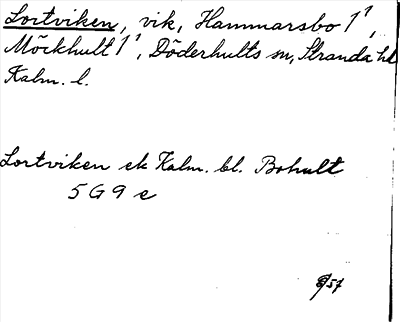 Lortviken, vik, Hammarsbo 1¹,
Möckhult 1¹, Döderhults sn, Stranda hd
Kalm. l.
Lortviken ek Kalm. bl. Bohult
5 G 9 e
57